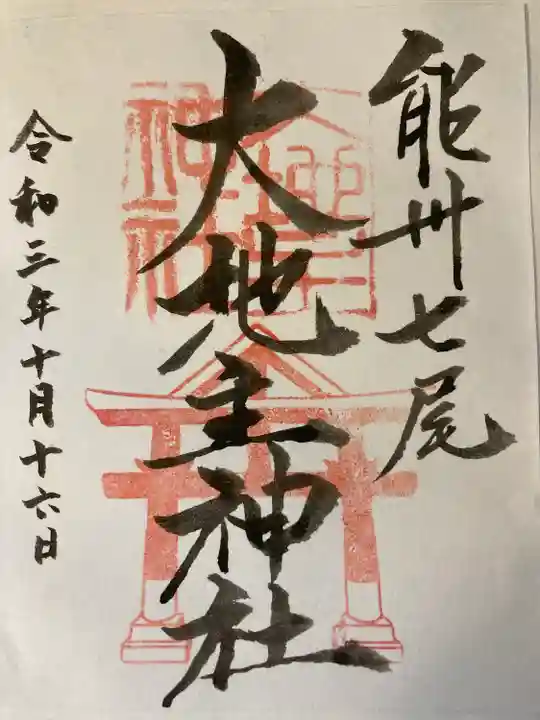 能州七尾
大地主神社
令和三年十月十六日
大地主神社